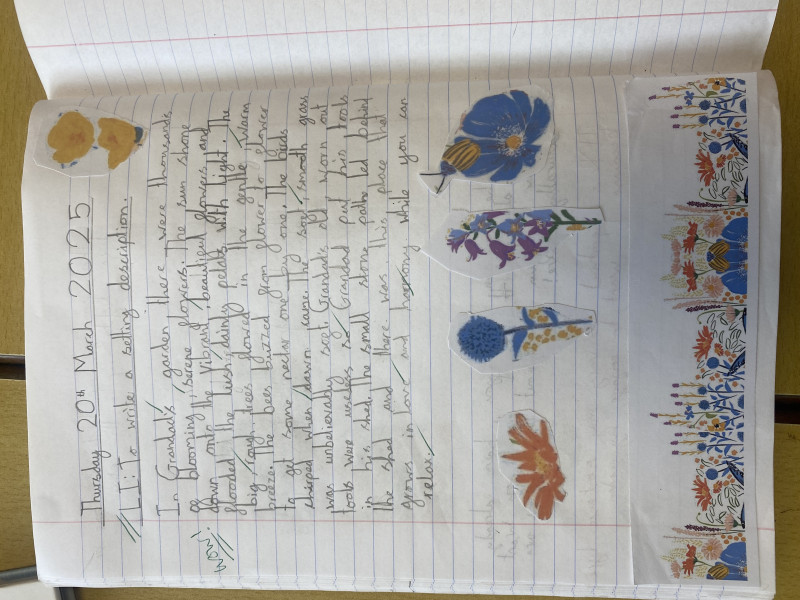 Thursday 20th March 2025
LI: To write a setting description.
In Grandad's garden there were thousands
of blooming, serene flowers. The sun shone
down onto the vibrant, beautiful flowers and
flooded the lush, dainty petals with light. The
big, tough trees flowed in the gentle, warm
breeze. The bees buzzed from flower to flower
to get some nectar one by one. The birds
chirped when dawn came. The soft, smooth grass
was unbelievably wet. Grandad's old worn out
tools were useless so Grandad put his tools
in his shed. The small stone paths led behind
the shed and there was this place that
grows in love and harmony while you can
relax.
Wow!